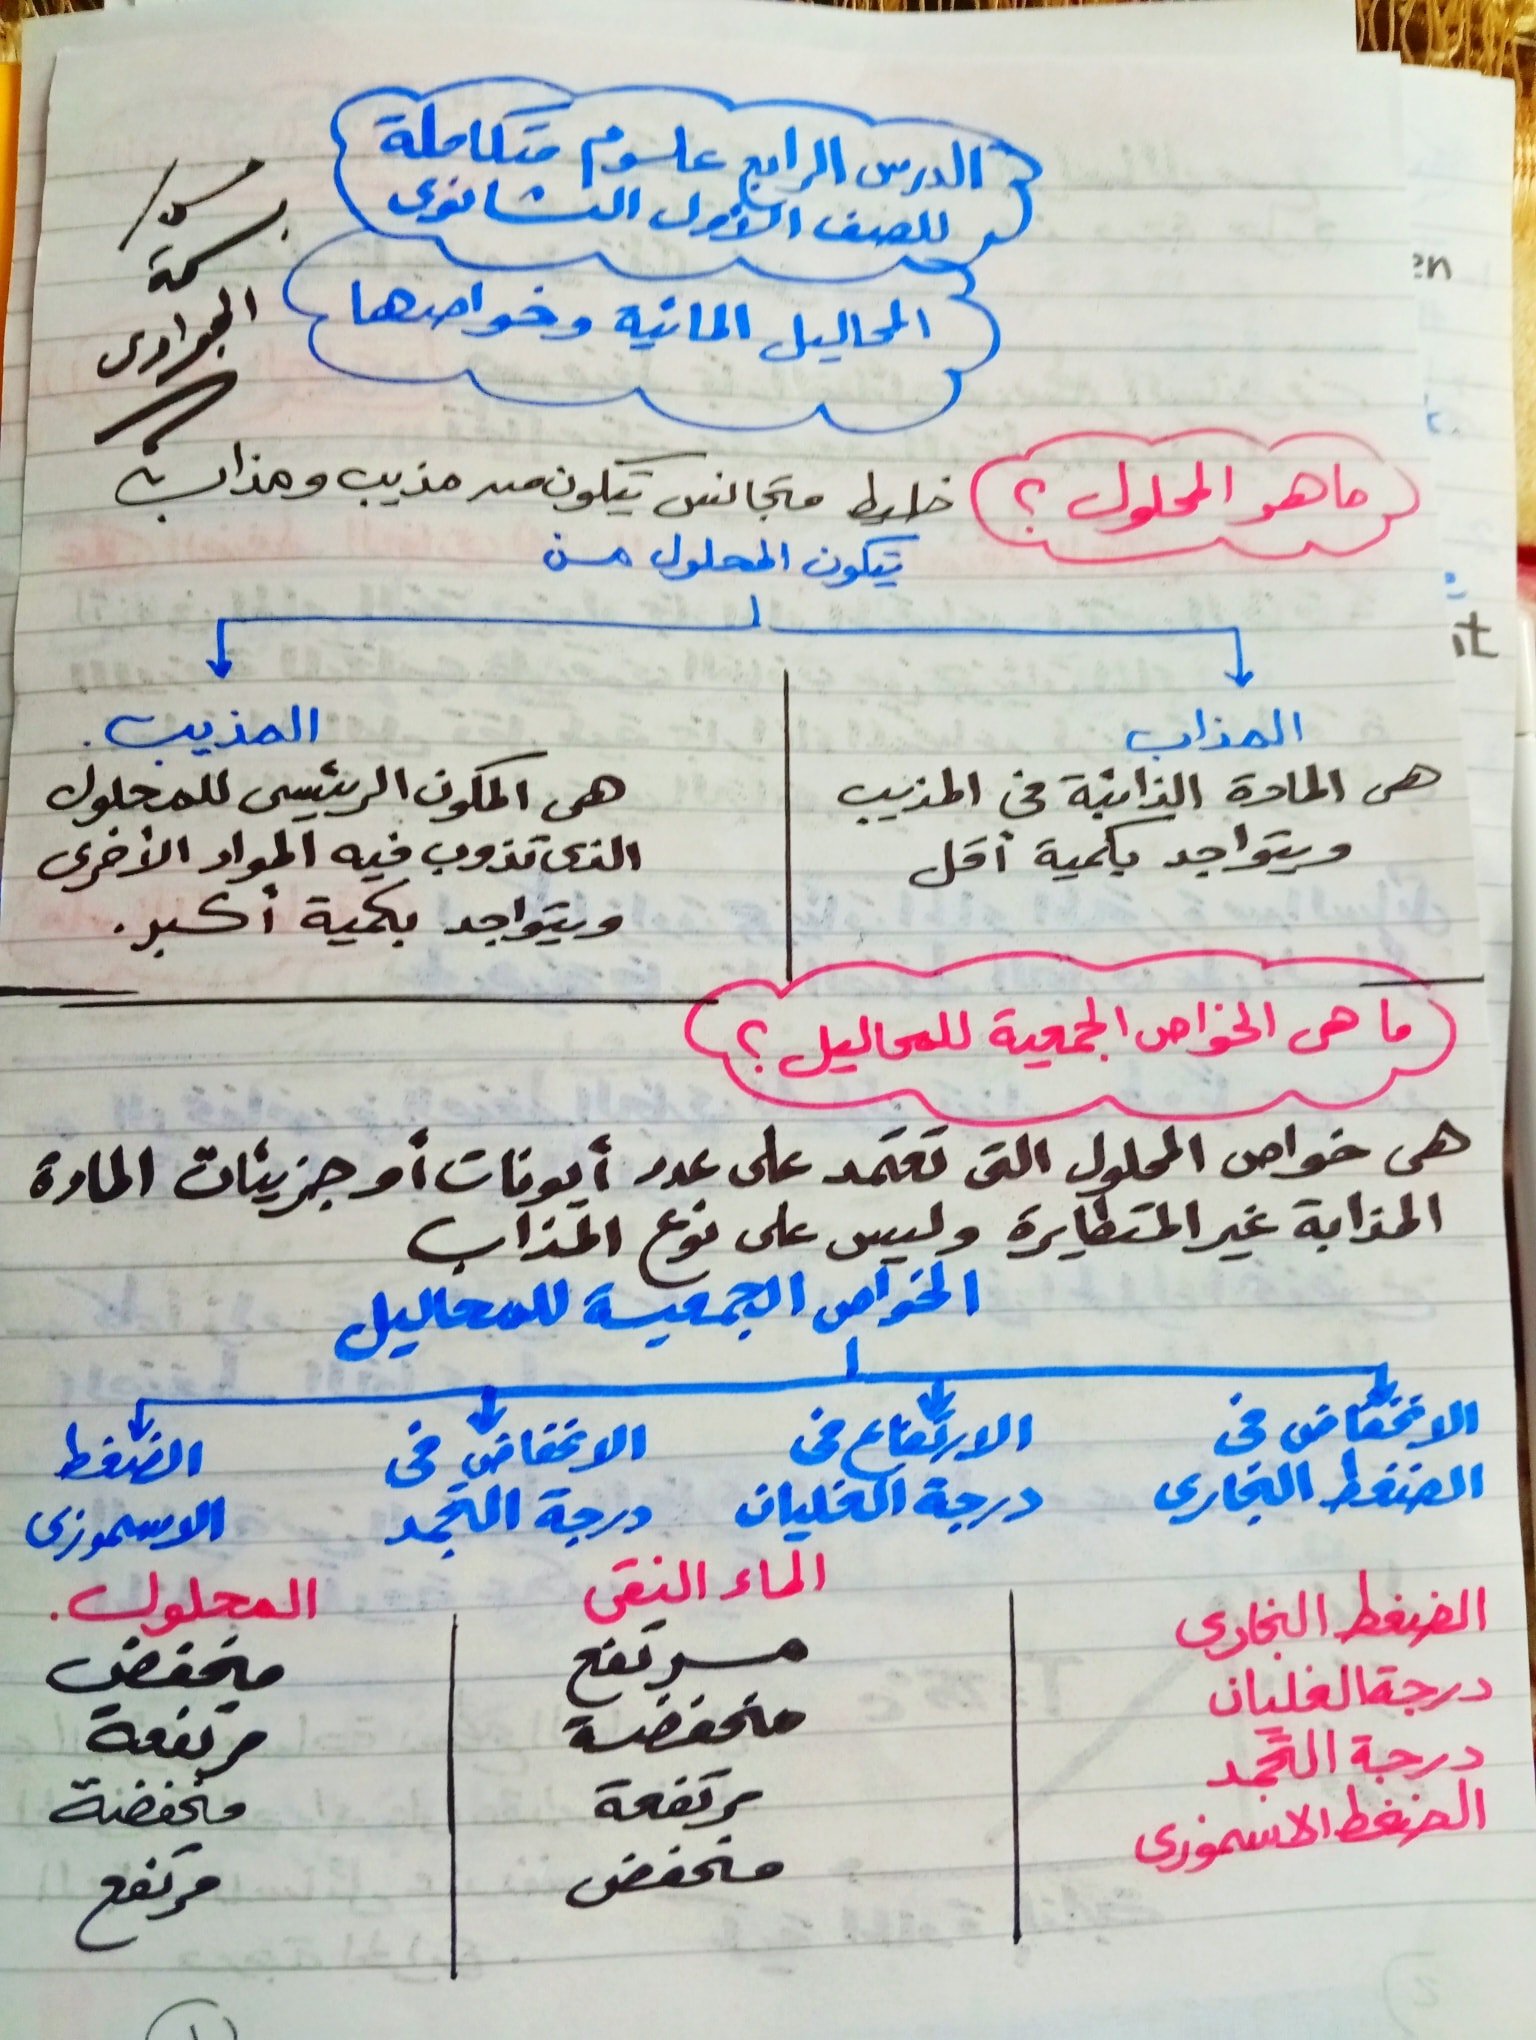 الدرس الرابع علوم متكاملة
للصف الأول الثانوى
المحاليل المائية وخواصها
مس/
بسمة
الجوادى
ما هو المحلول ؟
خليط متجانس يتكون من مذيب ومذاب
يتكون المحلول من
المذاب
هى المادة الذائبة فى المذيب
ويتواجد بكمية أقل
المذيب.
هى المكون الرئيسى للمحلول
الذى تذوب فيه المواد الأخرى
ويتواجد بكمية أكبر.
ما هى الخواص الجمعية للمحاليل ؟
هى خواص المحلول التى تعتمد على عدد أيونات أو جزيئات المادة
المذابة غير المتطايرة وليس على نوع المذاب
الخواص الجمعية للمحاليل
الانخفاض فى
الضغط البخارى
الارتفاع فى
درجة الغليان
الانخفاض فى
درجة التجمد
الضغط
الاسموزى
الماء النقى
المحلول.
الضغط البخارى
مرتفع
منخفض
درجة الغليان
منخفضة
مرتفعة
درجة التجمد
مرتفعة
منخفضة
الضغط الاسموزى
منخفض
مرتفع
en
it